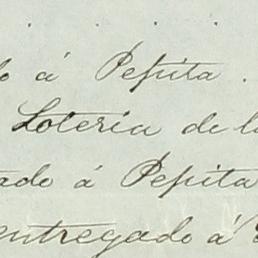 o á Pepita.
Loteria de l
ado á Pepita
entregado á